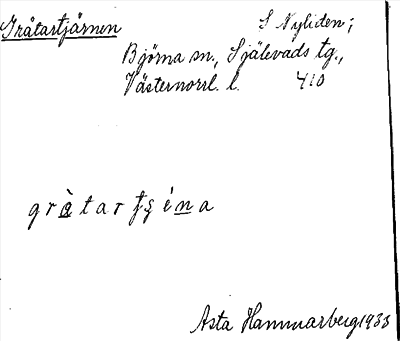 Gråtartjärnen S Nyliden;
Björna sn., Själevads tg.,
Västernorrl. l. 410
Asta Hammarberg 1933